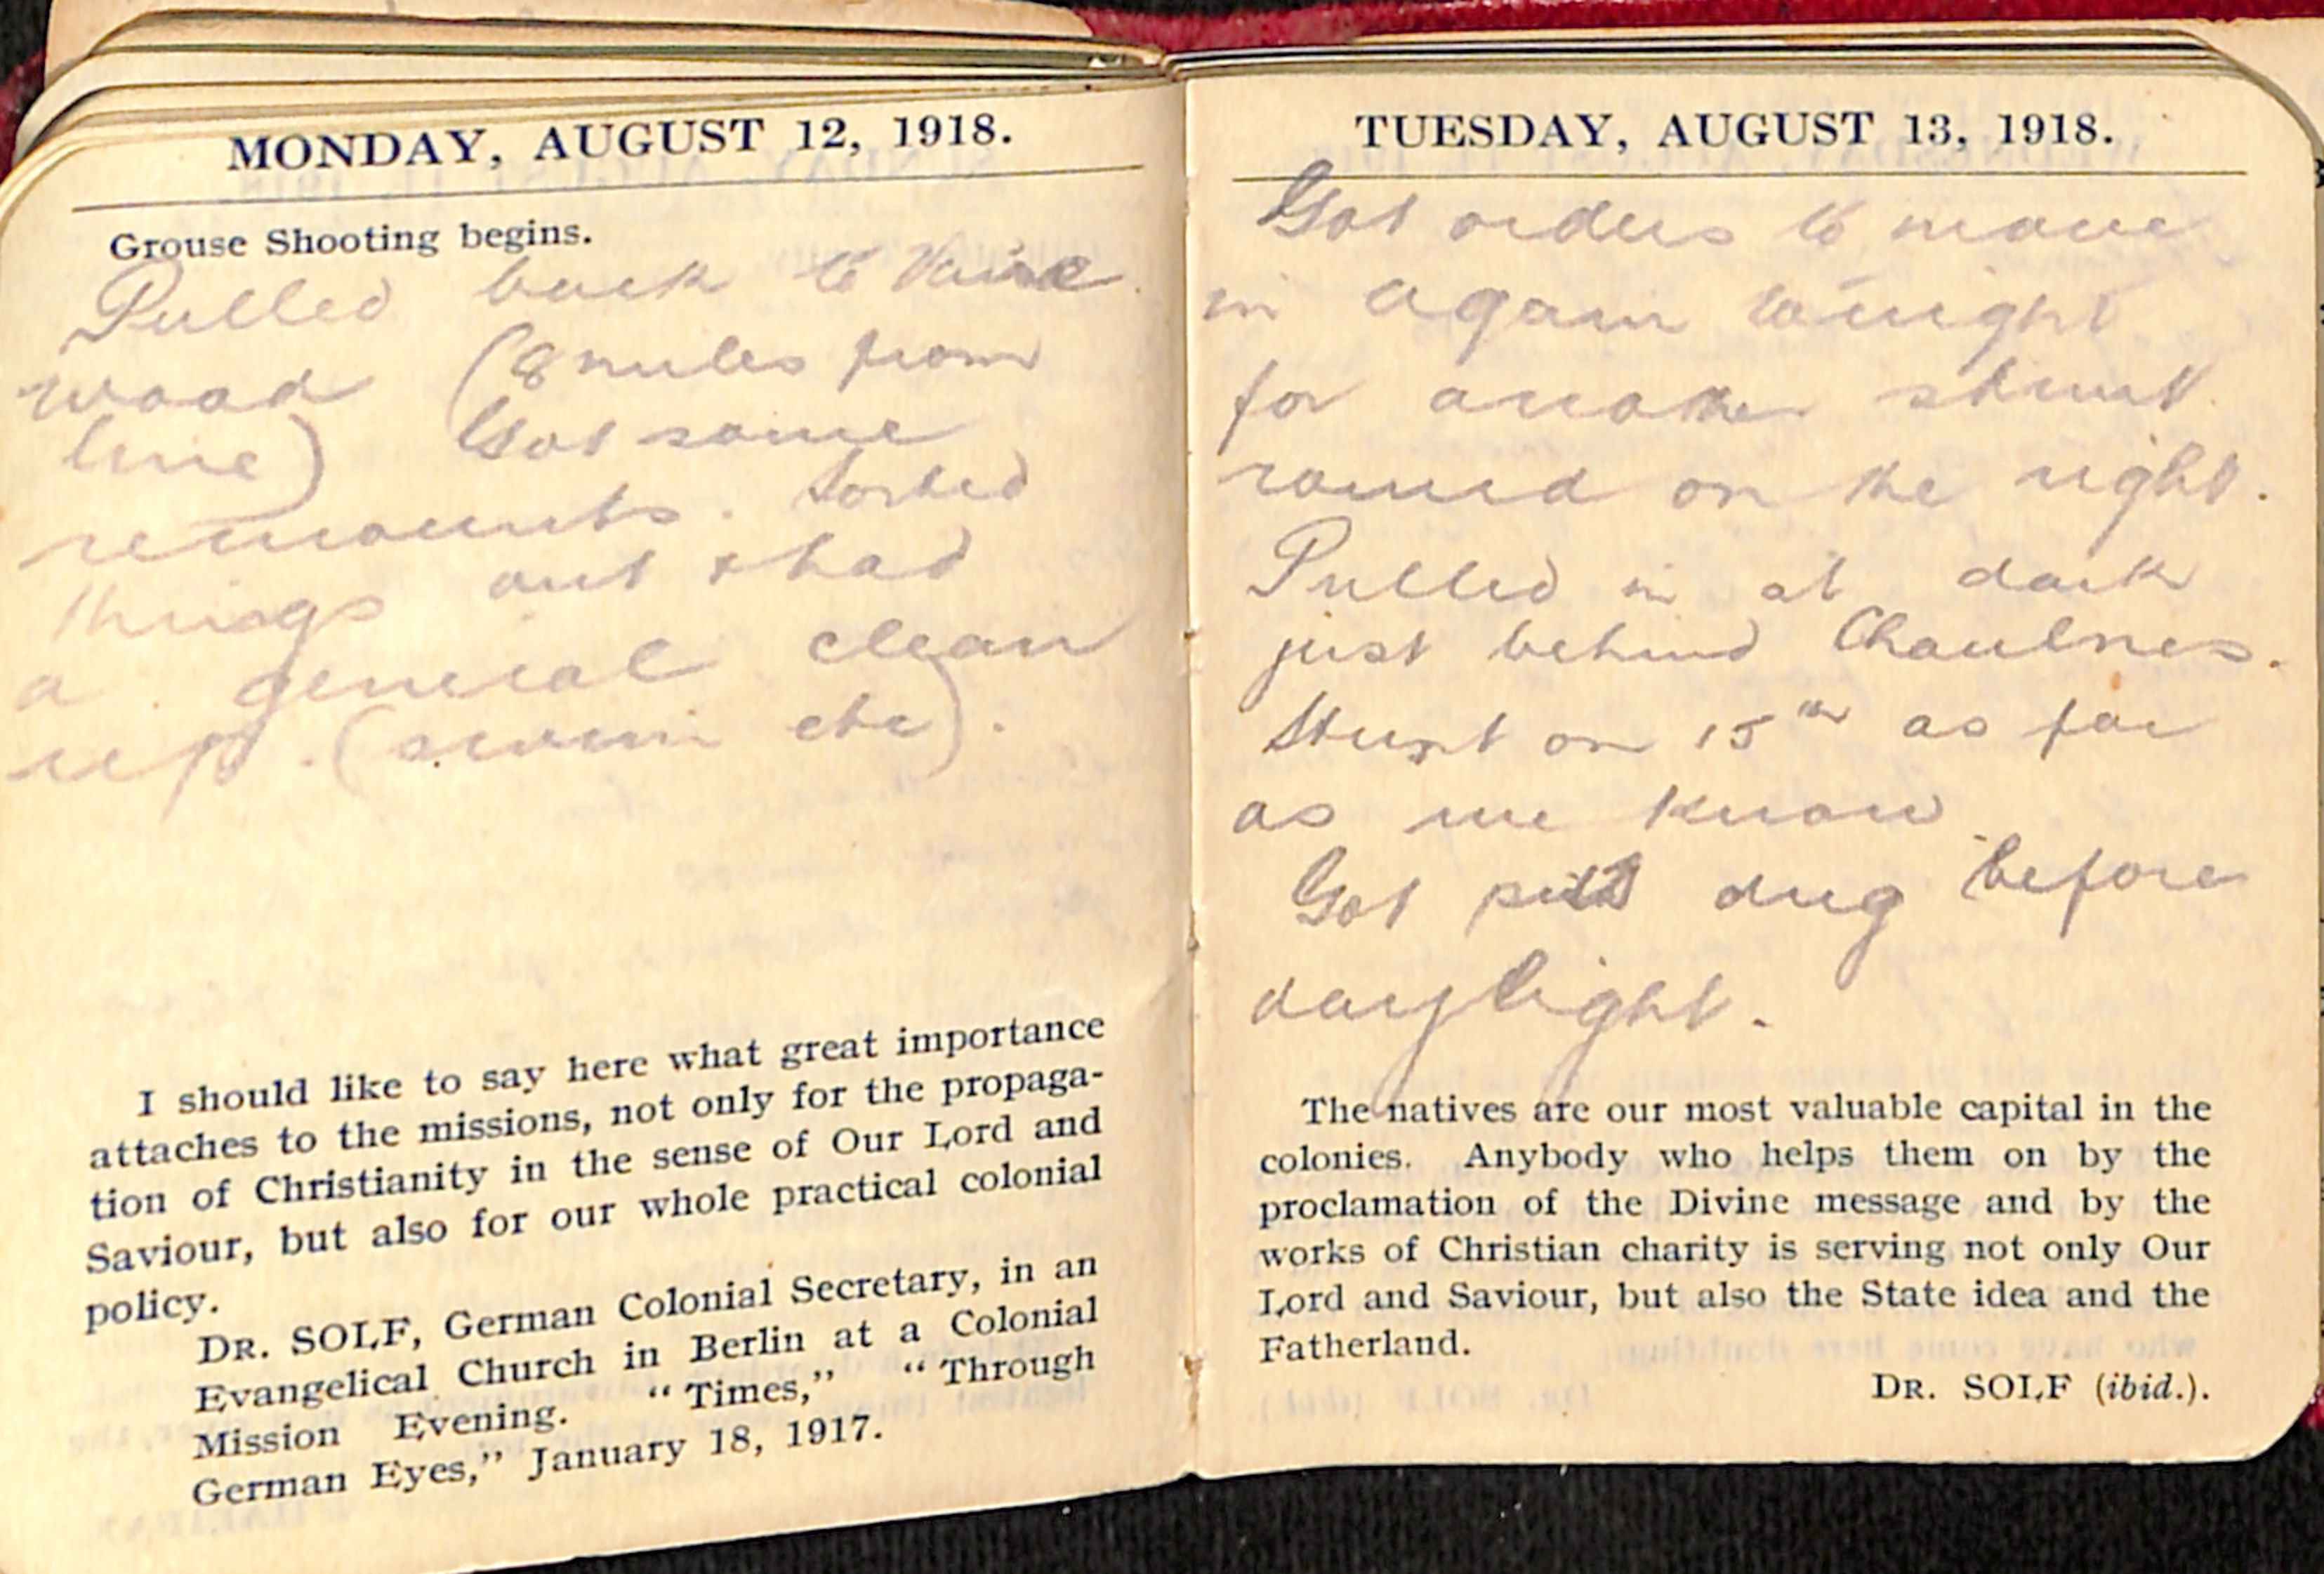 MONDAY, AUGUST 12, 1918.
Grouse Shooting begins.
Pulled back to
wood (8 miles from
line) Got some
remounts. Sorted
things out & had
a general clean
up. (swim etc).
I should like to say here what great importance
attaches to the missions, not only for the propaga-
tion of Christianity in the sense of Our Lord and
Saviour, but also for our whole practical colonial
policy.
DR. SOLF, German Colonial Secretary, in an
Evangelical Church in Berlin at a Colonial
Mission Evening. “Times,” “Through
German Eyes,” January 18, 1917.
TUESDAY, AUGUST 13, 1918.
Got orders to move
in again tonight
for another stunt
round on the right.
Pulled in at dark
just behind Chaulnes.
Stunt on 15th as far
as we know.
Got pits dug before
daylight.
The natives are our most valuable capital in the
colonies. Anybody who helps them on by the
proclamation of the Divine message and by the
works of Christian charity is serving not only Our
Lord and Saviour, but also the State idea and the
Fatherland.
DR. SOLF (ibid.).